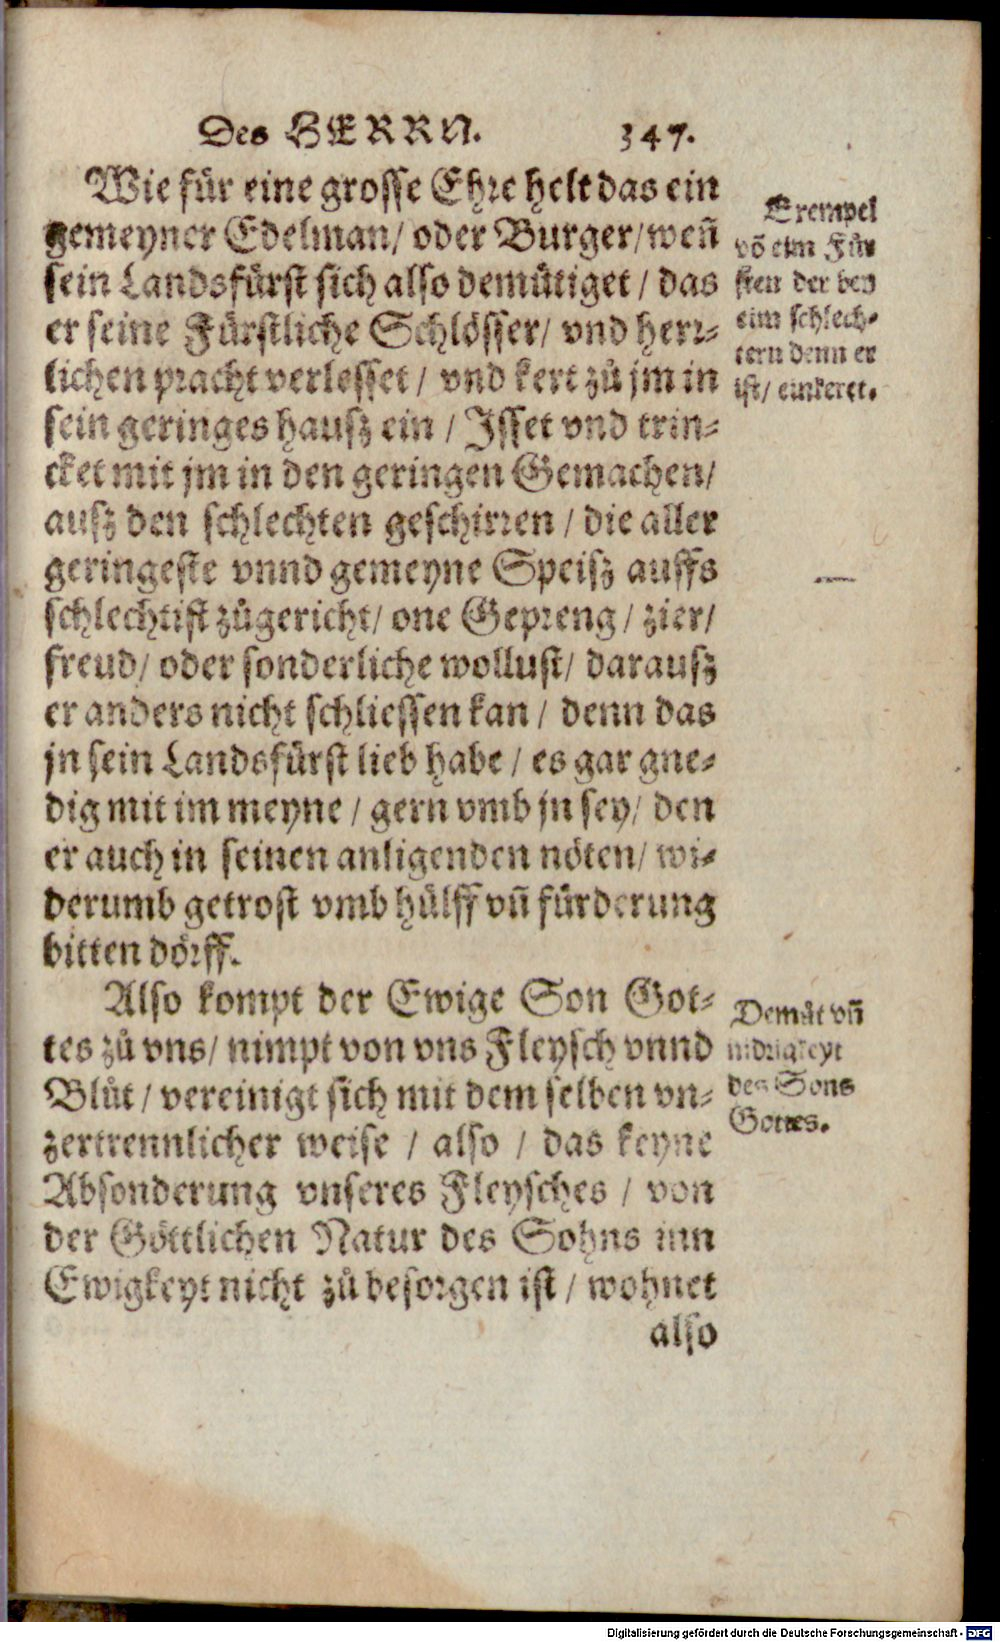 Des HERRN. 347.
Wie für eine grosse Ehre helt das ein
gemeyner Edelman/ oder Burger/ weñ
sein Landsfürst sich also demütiget / das
er seine Fürstliche Schlösser/ vnd herr-
lichen pracht verlesset / vnd kert zů jm in
sein geringes hausz ein / Jsset vnd trin-
cket mit jm in den geringen Gemachen/
ausz den schlechten geschirren / die aller
geringeste vnnd gemeyne Speisz auffs
schlechtist zůgericht/ one Gepreng / zier/
freud/ oder sonderliche wollust/ darausz
er anders nicht schliessen kan / denn das
jn sein Landsfürst lieb habe / es gar gne-
dig mit im meyne / gern vmb jn sey/ den
er auch in seinen anligenden nöten/ wi-
derumb getrost vmb hülff vñ fürderung
bitten dörff.
Also kompt der Ewige Son Got-
tes zů vns/ nimpt von vns Fleysch vnnd
Blůt / vereinigt sich mit dem selben vn-
zertrennlicher weise / also / das keyne
Absonderung vnseres Fleysches / von
der Göttlichen Natur des Sohns inn
Ewigkeyt nicht zů besorgen ist / wohnet
also
Exempel
võ eim Für
sten der bey
eim schlech-
tern denn er
ist/ einkeret.
Demůt vñ
nidrigkeyt
des Sons
Gottes.
Digitalisierung gefördert durch die Deutsche Forschungsgemeinschaft - DFG